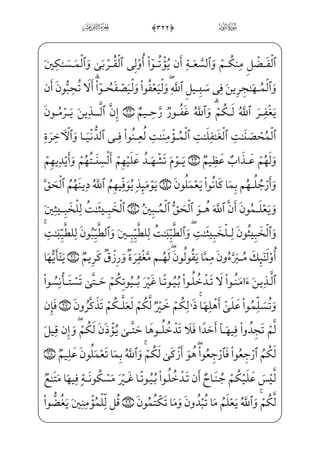 سُورَةُ النُّورِ ﴿٣٢٢﴾ الجُزْءُ الثَّامِنَ عَشَرَ
ٱلْفَضْلِ مِنكُمْ وَٱلسَّعَةِ أَن يُؤْتُوٓا۟ أُو۟لِى ٱلْقُرْبَىٰ وَٱلْمَسَـٰكِينَ
وَٱلْمُهَـٰجِرِينَ فِى سَبِيلِ ٱللَّهِ ۖ وَلْيَعْفُوا۟ وَلْيَصْفَحُوٓا۟ ۗ أَلَا تُحِبُّونَ أَن
يَغْفِرَ ٱللَّهُ لَكُمْ ۗ وَٱللَّهُ غَفُورٌ رَّحِيمٌ ٢٢ إِنَّ ٱلَّذِينَ يَرْمُونَ
ٱلْمُحْصَنَـٰتِ ٱلْغَـٰفِلَـٰتِ ٱلْمُؤْمِنَـٰتِ لُعِنُوا۟ فِى ٱلدُّنْيَا وَٱلْـَٔاخِرَةِ
وَلَهُمْ عَذَابٌ عَظِيمٌ ٢٣ يَوْمَ تَشْهَدُ عَلَيْهِمْ أَلْسِنَتُهُمْ وَأَيْدِيهِمْ
وَأَرْجُلُهُم بِمَا كَانُوا۟ يَعْمَلُونَ ٢٤ يَوْمَئِذٍ يُوَفِّيهِمُ ٱللَّهُ دِينَهُمُ ٱلْحَقَّ
وَيَعْلَمُونَ أَنَّ ٱللَّهَ هُوَ ٱلْحَقُّ ٱلْمُبِينُ ٢٥ ٱلْخَبِيثَـٰتُ لِلْخَبِيثِينَ
وَٱلْخَبِيثُونَ لِلْخَبِيثَـٰتِ ۖ وَٱلطَّيِّبَـٰتُ لِلطَّيِّبِينَ وَٱلطَّيِّبُونَ لِلطَّيِّبَـٰتِ ۚ
أُو۟لَـٰٓئِكَ مُبَرَّءُونَ مِمَّا يَقُولُونَ ۖ لَهُم مَّغْفِرَةٌ وَرِزْقٌ كَرِيمٌ ٢٦ يَـٰٓأَيُّهَا
ٱلَّذِينَ ءَامَنُوا۟ لَا تَدْخُلُوا۟ بُيُوتًا غَيْرَ بُيُوتِكُمْ حَتَّىٰ تَسْتَأْنِسُوا۟
وَتُسَلِّمُوا۟ عَلَىٰٓ أَهْلِهَا ۚ ذَٰلِكُمْ خَيْرٌ لَّكُمْ لَعَلَّكُمْ تَذَكَّرُونَ ٢٧ فَإِن
لَّمْ تَجِدُوا۟ فِيهَآ أَحَدًا فَلَا تَدْخُلُوهَا حَتَّىٰ يُؤْذَنَ لَكُمْ ۖ وَإِن قِيلَ
لَكُمُ ٱرْجِعُوا۟ فَٱرْجِعُوا۟ ۖ هُوَ أَزْكَىٰ لَكُمْ ۚ وَٱللَّهُ بِمَا تَعْمَلُونَ عَلِيمٌ ٢٨
لَّيْسَ عَلَيْكُمْ جُنَاحٌ أَن تَدْخُلُوا۟ بُيُوتًا غَيْرَ مَسْكُونَةٍ فِيهَا مَتَـٰعٌ
لَّكُمْ ۚ وَٱللَّهُ يَعْلَمُ مَا تُبْدُونَ وَمَا تَكْتُمُونَ ٢٩ قُل لِّلْمُؤْمِنِينَ يَغُضُّوا۟